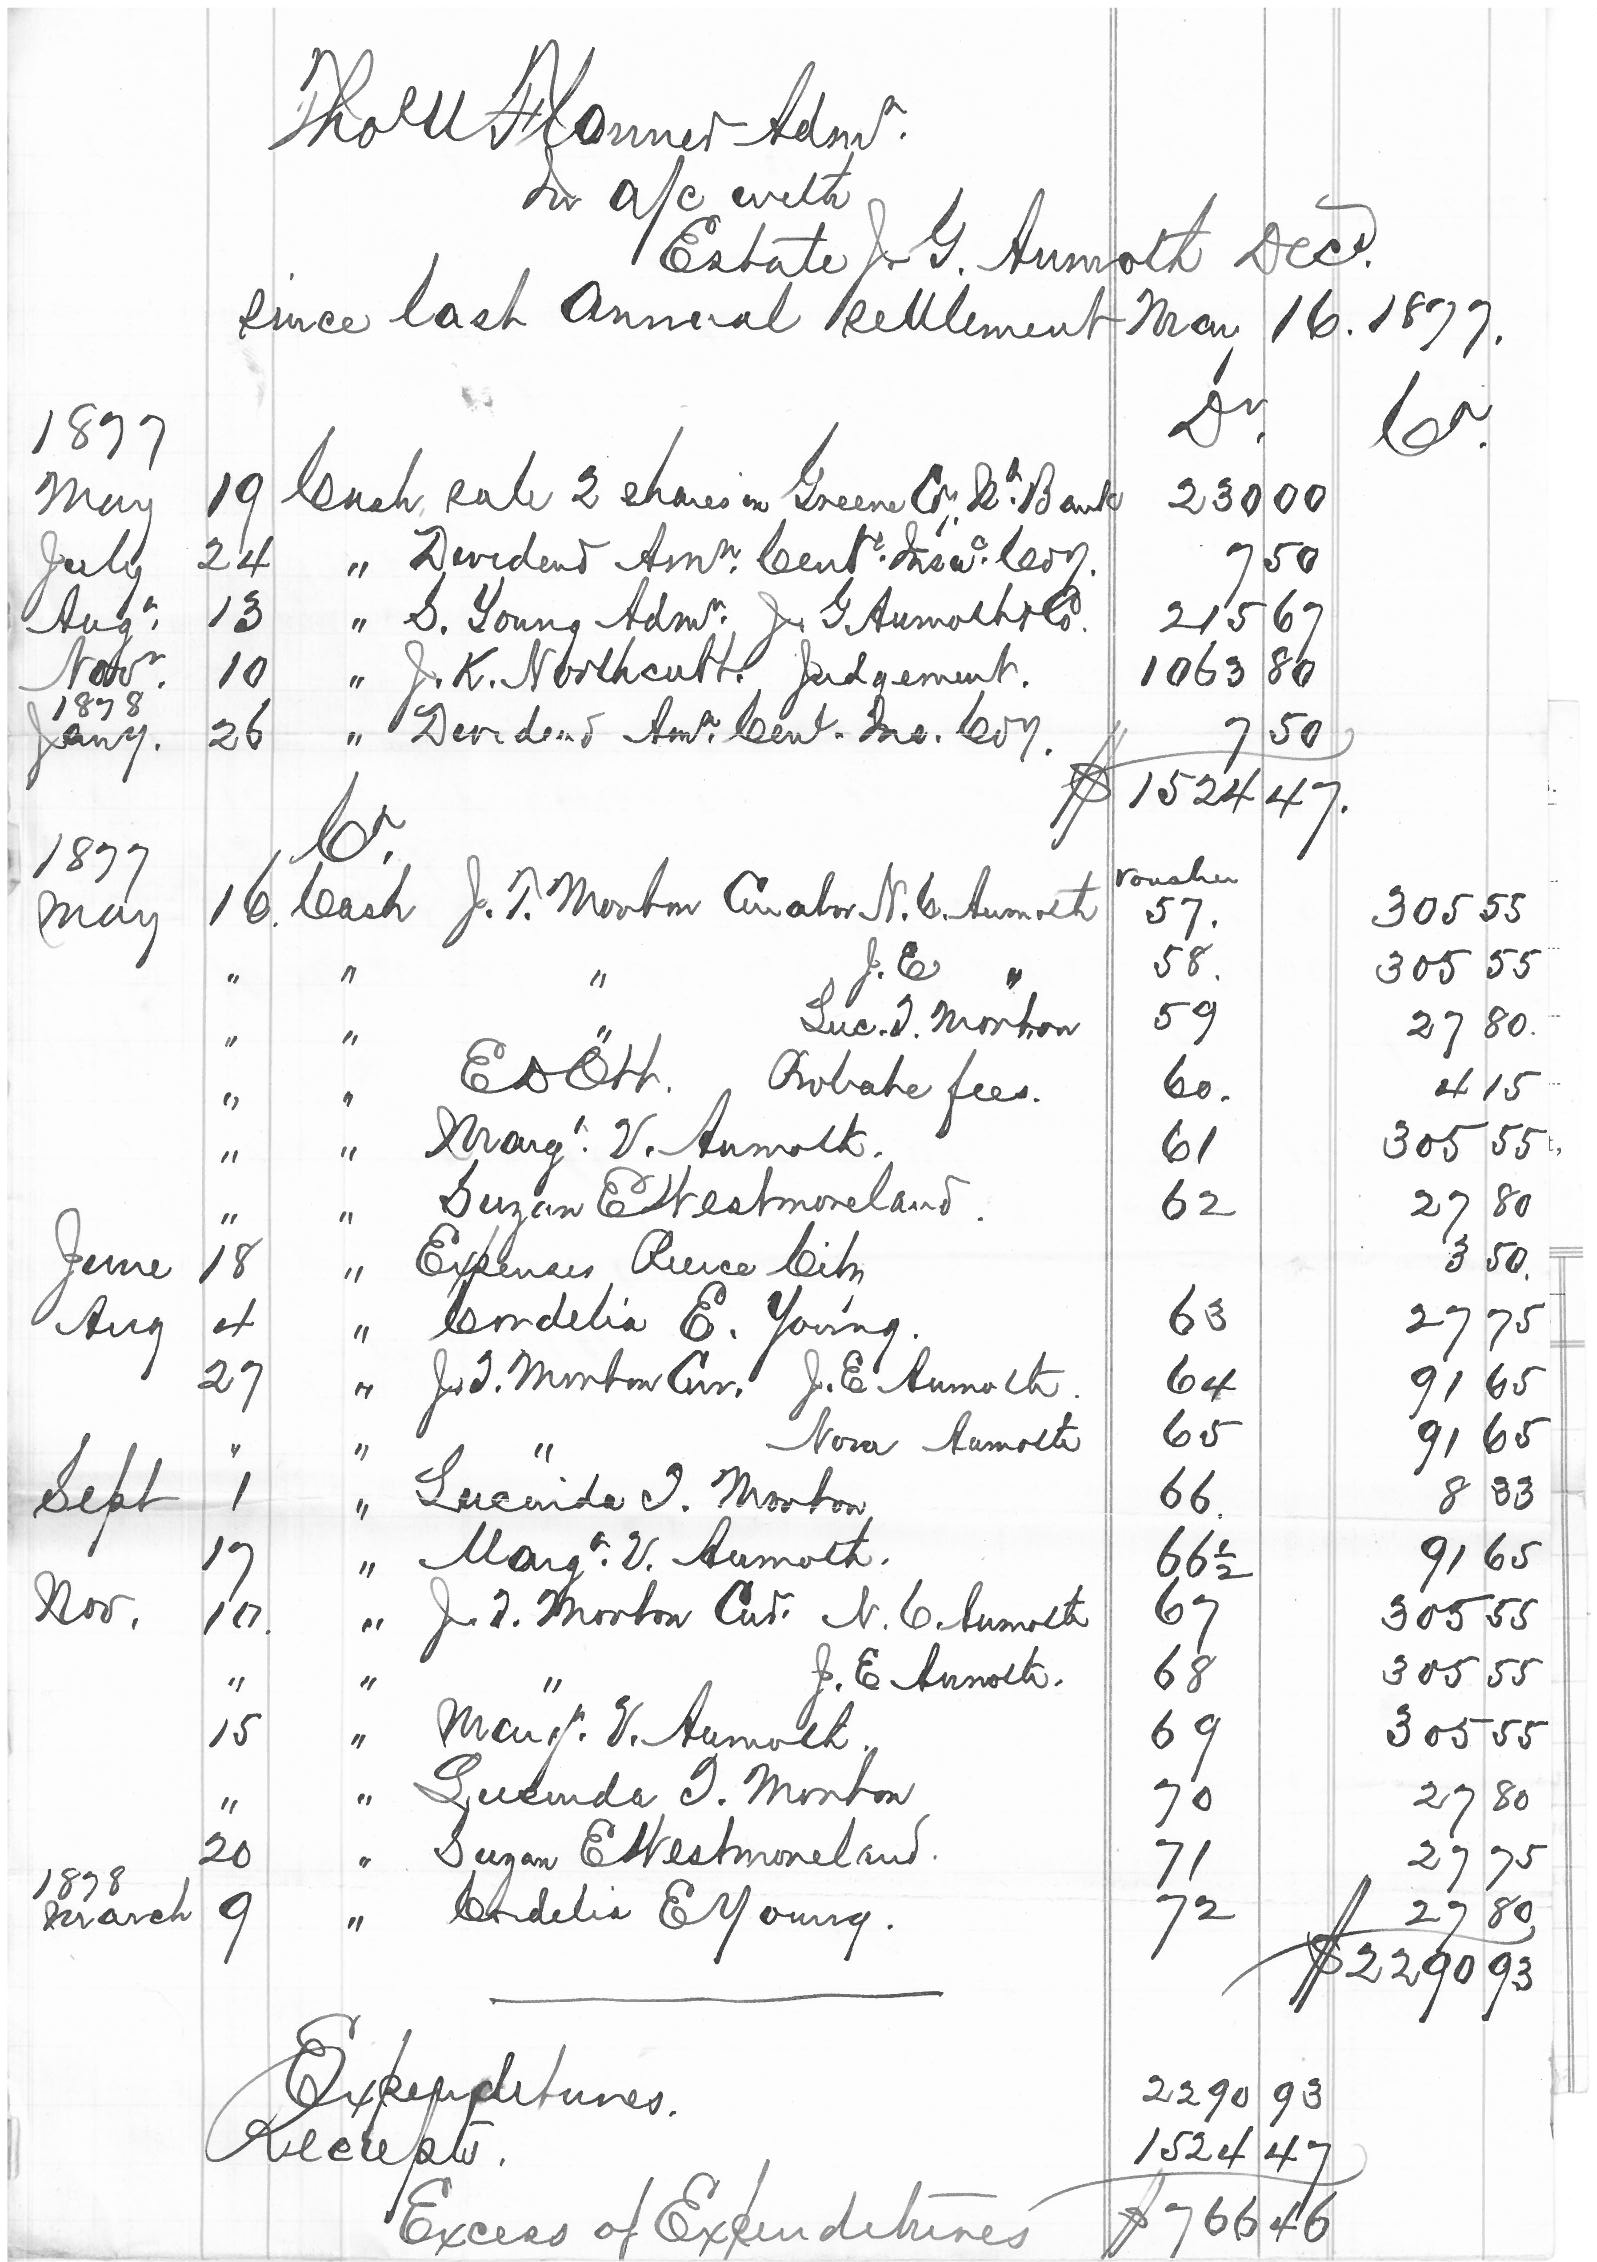 Thos U Flanner Admr.
In a/c with
Estate J. G. Aumoth Decd.
since last annual settlement May 16. 1877.
Dr. Cr.
1877
May 19 Cash, sale 2 shares in Greene Co. Na. Bank 230 00
July 24 " Dividend Amn. Cent. Insce. Coy. 7 50
Augt. 13 " S. Young Admr. J. G. Aumoth & Co. 215 67
Novr. 10 " J. K. Northcutt. Judgement. 1063 80
1878
Jany. 26 " Dividend Amn. Cent. Ins. Coy. 7 50
$ 1524 47.
Cr.
1877 voucher
May 16. Cash J. T. Morton Curator N. C. Aumoth 57. 305 55
" " " J. E " 58. 305 55
" " " Luc. T. Morton 59 27 80.
" " E D Ott. Probate fees. 60. 4 15
" " Margt. V. Aumoth. 61 305 55
" " Suzan E Westmoreland. 62 27 80
June 18 " Expenses Pierce City 3 50.
Aug 4 " Cordelia E. Young. 63 27 75
27 " J. T. Morton Cur. J. E Aumoth. 64 91 65
" " " Nora Aumoth 65 91 65
Sept 1 " Lucinda T. Morton 66. 8 33
17 " Margt. V. Aumoth. 66½ 91 65
Nov. 10. " J. T. Morton Cur. N. C. Aumoth 67 305 55
" " " J. E Aumoth. 68 305 55
15 " Margt. V. Aumoth. 69 305 55
" " Lucinda T. Morton 70 27 80
20 " Suzan E Westmoreland. 71 27 75
1878
March 9 " Cordelia E Young. 72 27 80
$2290 93
Expenditures. 2290 93
Receipts. 1524 47
Excess of Expenditures $ 766 46